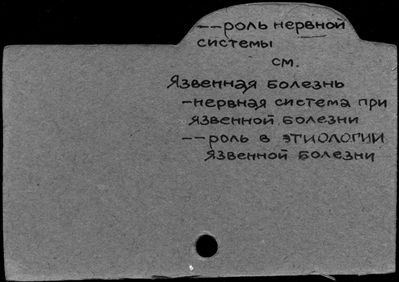 --роль нервной
системы
см.
Язвенная болезнь
-нервная система при
язвенной болезни
--роль в этиологии
язвенной болезни